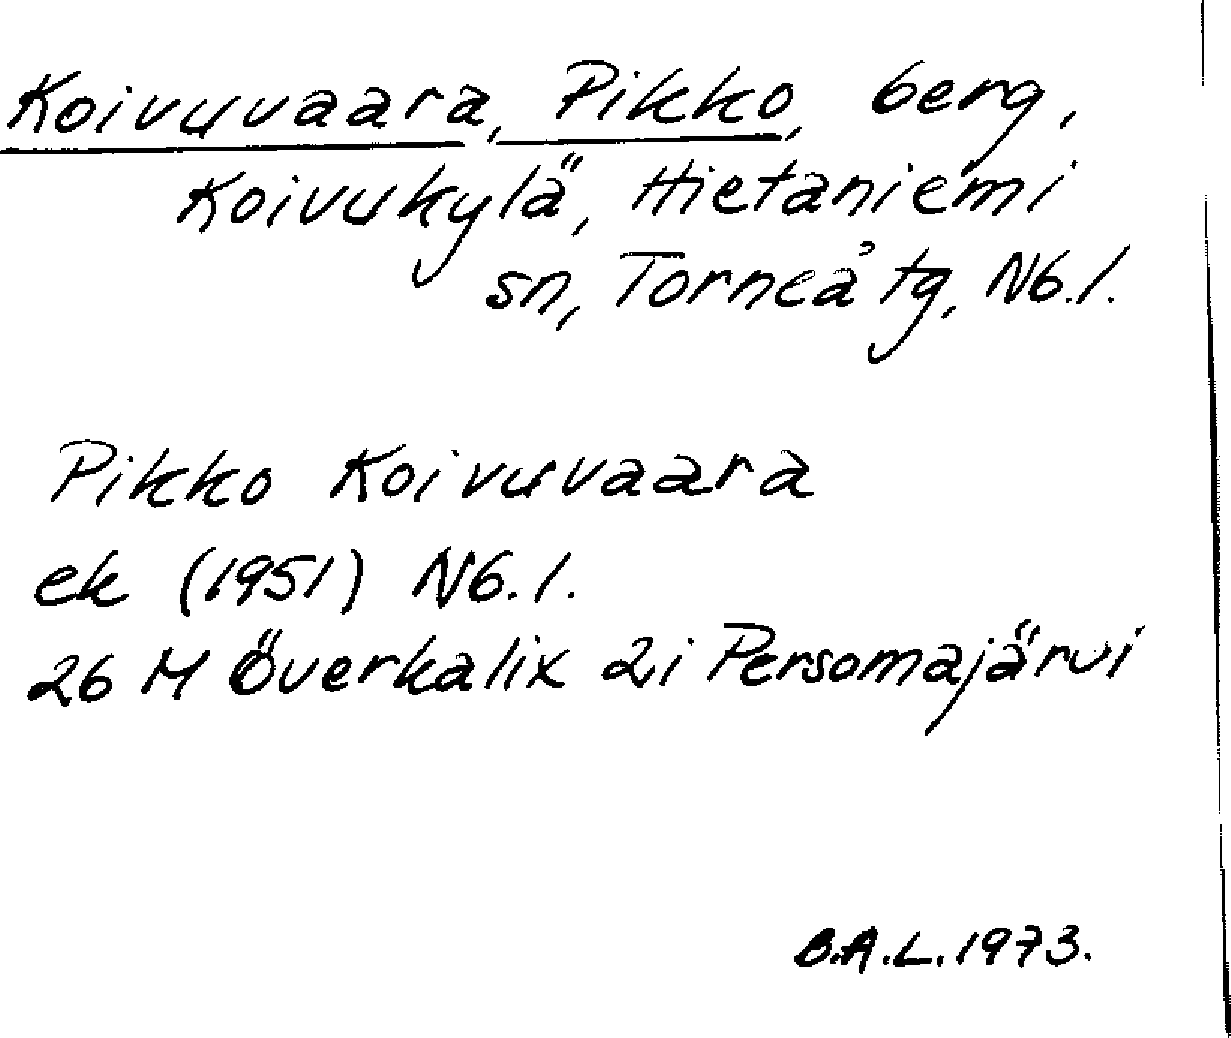 Koivuvaara, Pikko, berg,
Koivukylä, Hietaniemi
sn, Torneå tg, Nb.l.
Pikko Koivuvaara
ek (1951) Nb.l.
26 M Överkalix 2i Persomajärvi
B.A.L. 1973.